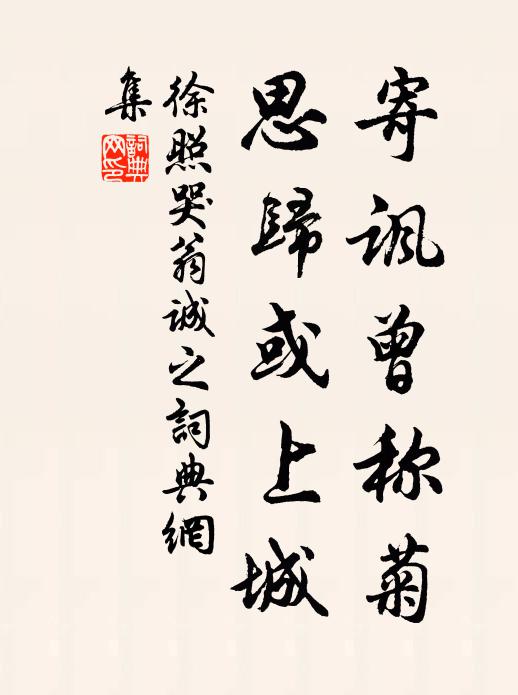 寄讽曾称菊
思歸或上城
徐照哭翁诚之詞典網
集
詞典
网印